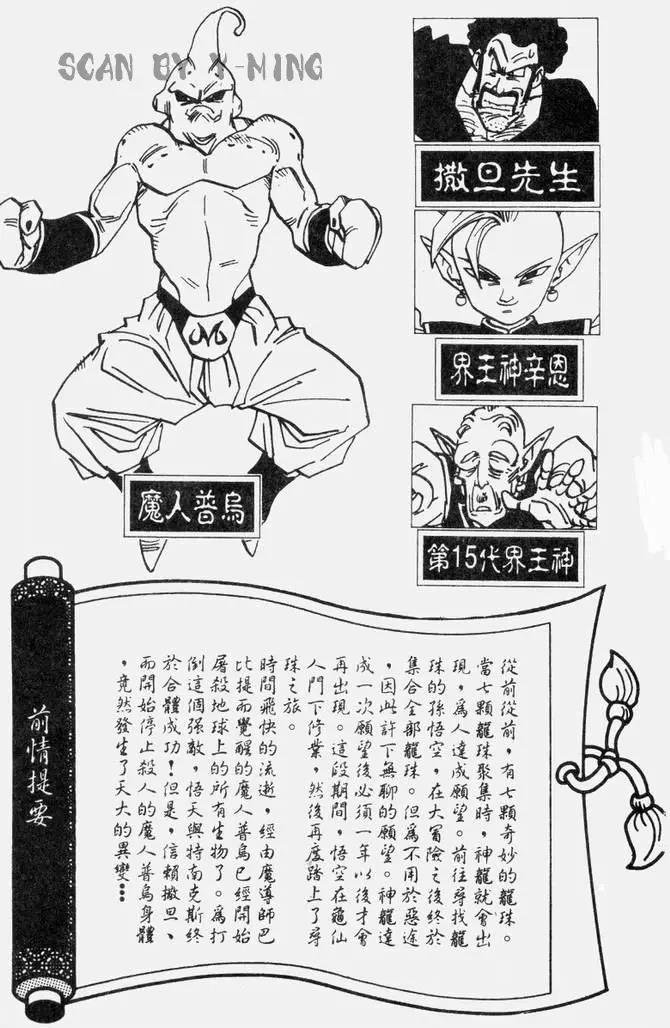 SCAN BY Y-MING
撒旦先生
界王神辛恩
第15代界王神
魔人普烏
前情提要
從前從前,有七顆奇妙的龍珠。
當七顆龍珠聚集時,神龍就會出
現,為人達成願望。前往尋找龍
珠的孫悟空,在大冒險之後終於
集合全部龍珠。但為不用於惡途
,因此許下無聊的願望。神龍達
成一次願望後必須一年以後才會
再出現。這段期間,悟空在龜仙
人門下修業,然後再度踏上了尋
珠之旅。
時間飛快的流逝,經由魔導師巴
比提而覺醒的魔人普烏已經開始
屠殺地球上的所有生物了。為打
倒這個強敵,悟天與特南克斯終
於合體成功!但是,信賴撒旦、
而開始停止殺人的魔人普烏身體
,竟然發生了天大的異變⋯⋯